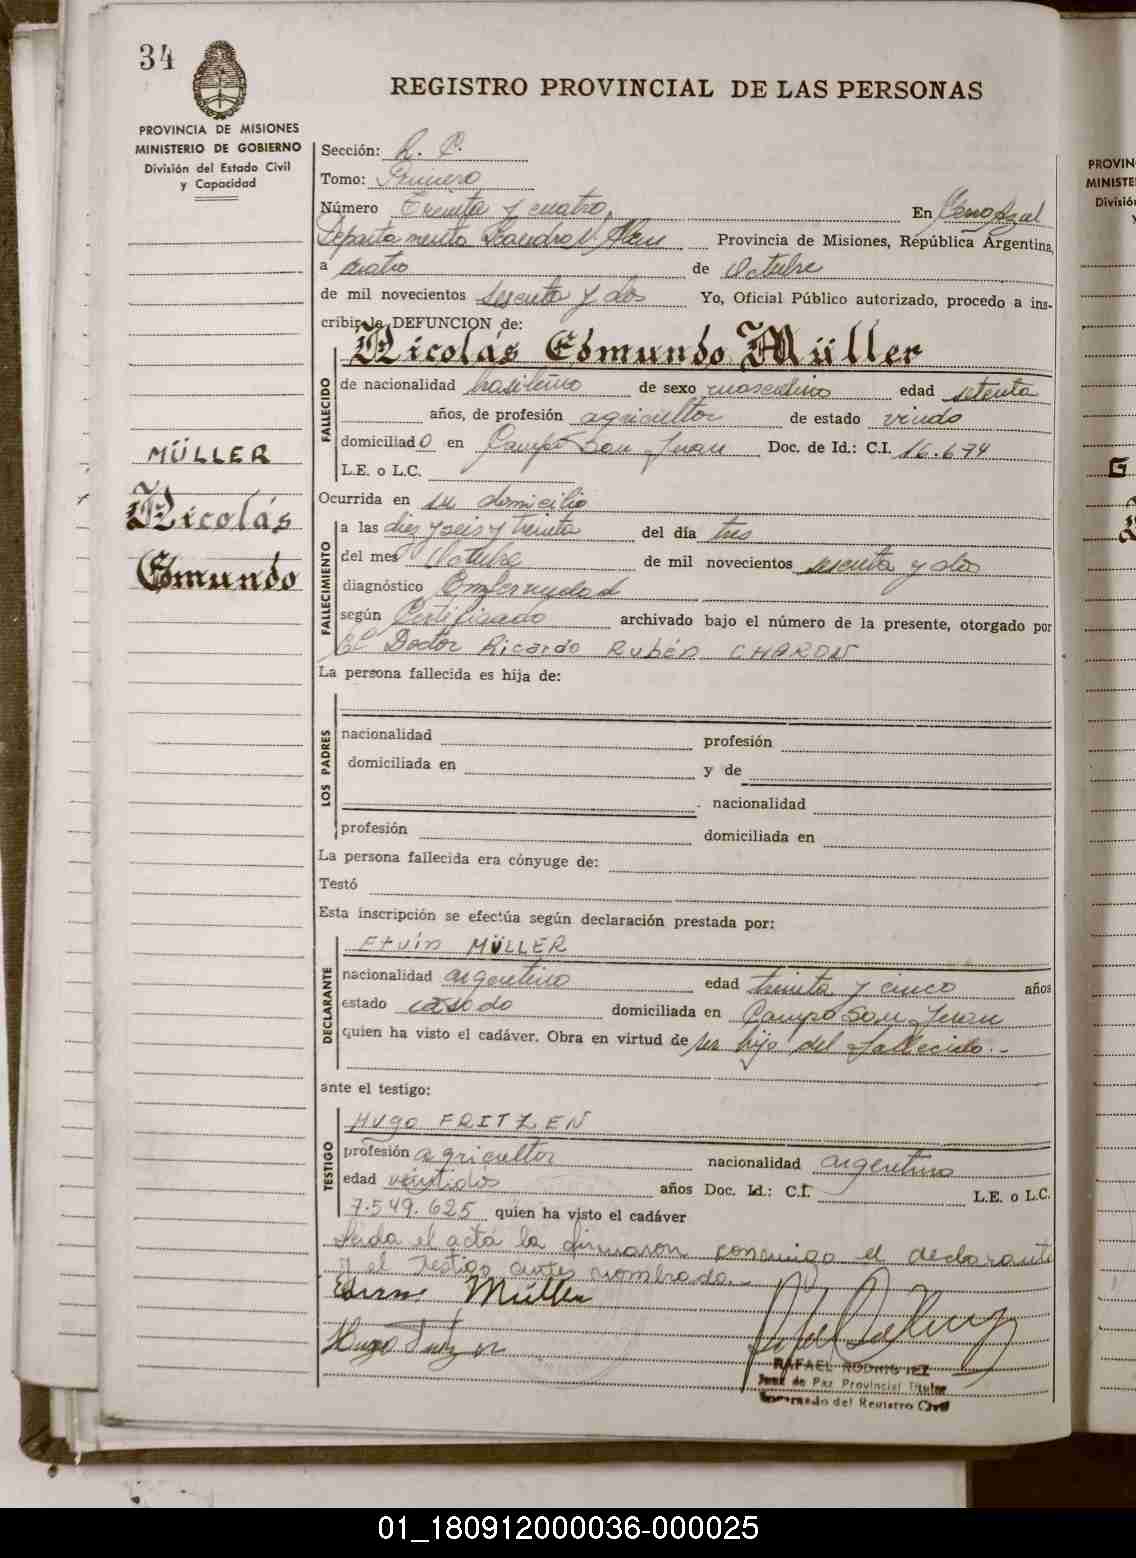 34
REGISTRO PROVINCIAL DE LAS PERSONAS
PROVINCIA DE MISIONES
MINISTERIO DE GOBIERNO
División del Estado Civil
y Capacidad
Sección:
Tomo: Primero
Número Treinta y cuatro, En Cerro Azul
Departamento Leandro N. Alem Provincia de Misiones, República Argentina,
a cuatro de Octubre
de mil novecientos sesenta y dos Yo, Oficial Público autorizado, procedo a ins-
cribir la DEFUNCION de:
Nicolás Edmundo Müller
FALLECIDO
de nacionalidad brasileño de sexo masculino edad setenta
años, de profesión agricultor de estado viudo
domiciliado en Campo San Juan Doc. de Id.: C.I. 16.674
L.E. o L.C.
MÜLLER
Nicolás
Edmundo
Ocurrida en su domicilio
FALLECIMIENTO
a las diez y seis y treinta del día tres
del mes Octubre de mil novecientos sesenta y dos
diagnóstico Enfermedad
según Certificado archivado bajo el número de la presente, otorgado por
el Doctor Ricardo Rubén CHARON
La persona fallecida es hija de:
LOS PADRES
nacionalidad profesión
domiciliada en y de
nacionalidad
profesión domiciliada en
La persona fallecida era cónyuge de:
Testó
Esta inscripción se efectúa según declaración prestada por:
DECLARANTE
MÜLLER
nacionalidad argentino edad treinta y cinco años
estado casado domiciliada en Campo San Juan
quien ha visto el cadáver. Obra en virtud de ser hijo del fallecido.-
ante el testigo:
TESTIGO
Hugo FRITZEN
profesión agricultor nacionalidad argentino
edad veintidós años Doc. Id.: C.I. L.E. o L.C.
7.549.625 quien ha visto el cadáver
Leída el acta la firmaron conmigo el declarante
y el testigo antes nombrado.-
Müller
Hugo Fritzen
RAFAEL RODRIGUEZ
Juez de Paz Provincial Titular
Encargado del Registro Civil
PROVIN
MINISTE
División
G
01_180912000036-000025